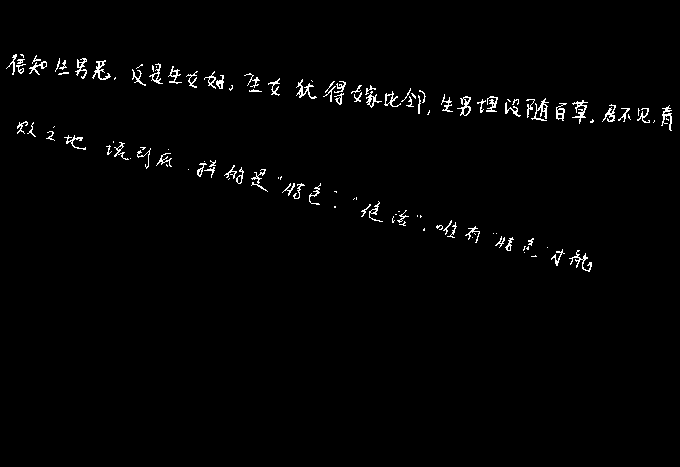 信知生男恶,反是生女好。生女犹得嫁比邻,生男埋没随百草。君不见,青
败之地 说到底.拼的是"特色":"低活",唯有"特色"才能